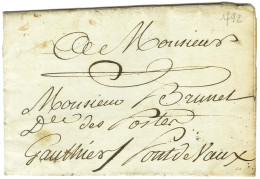 1792
A Monsieur
Monsieur Brunet
Dr des Postes
Gauthier / Pont de Vaux